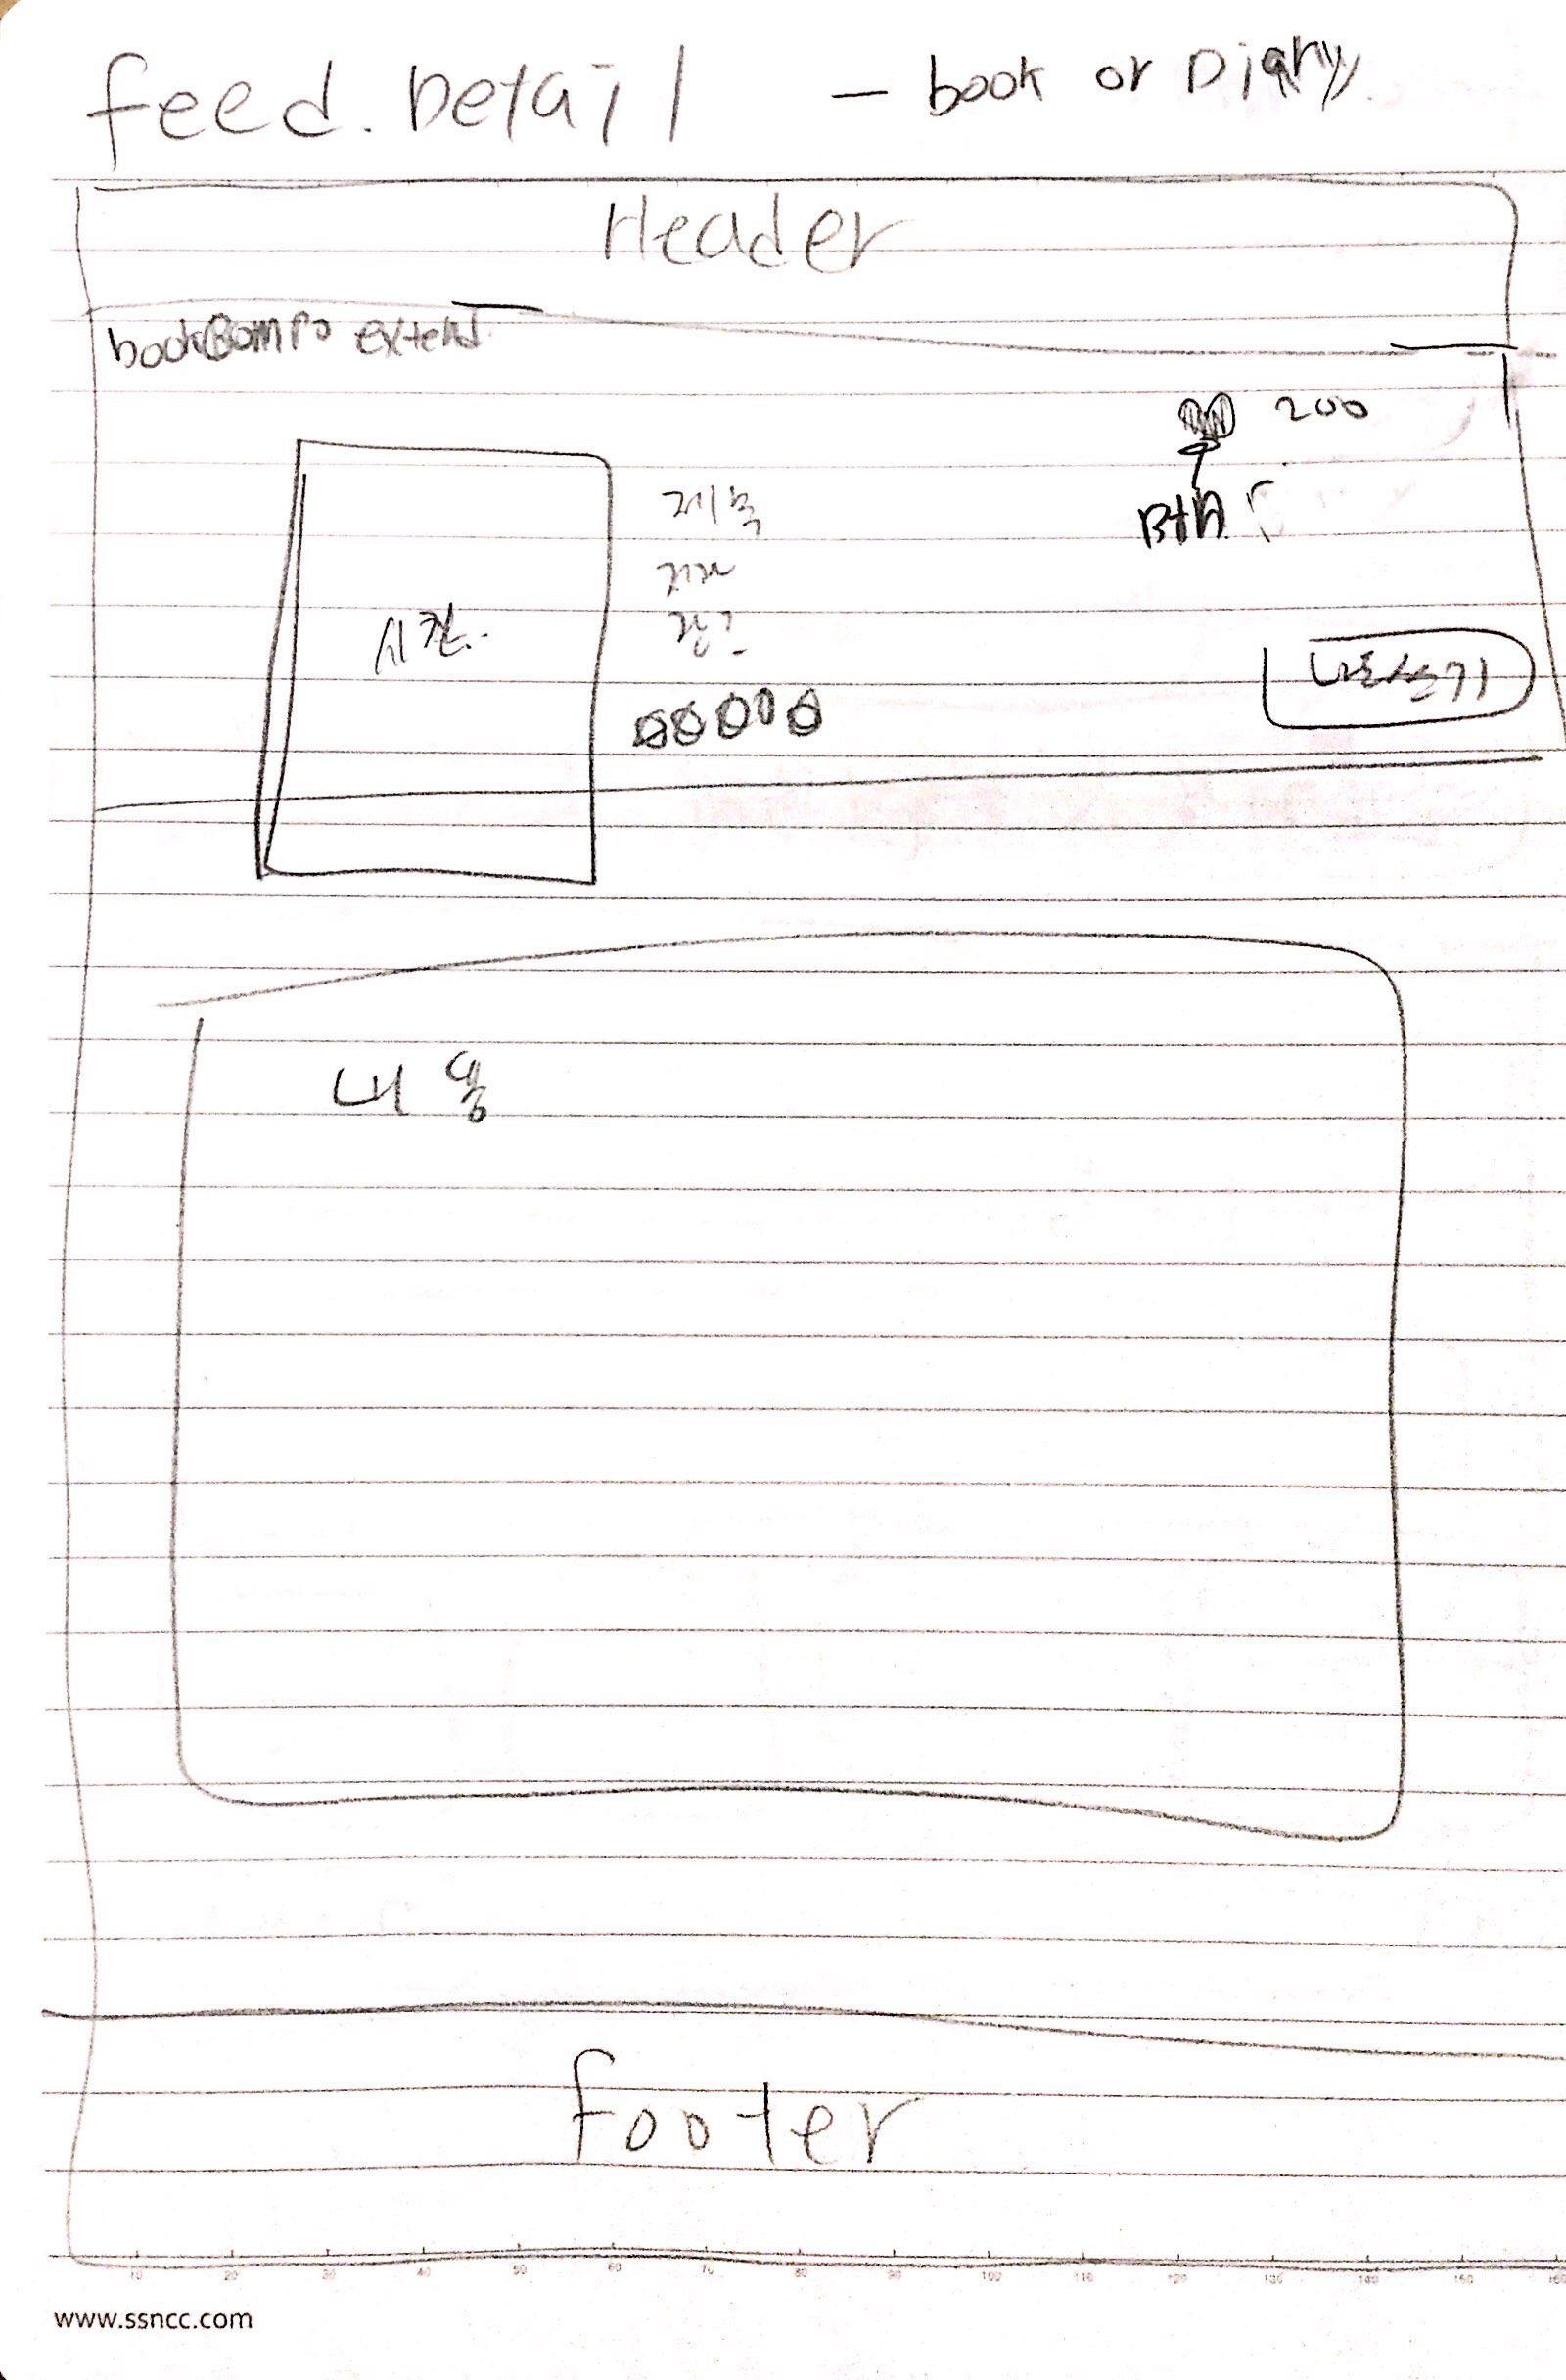 feed. Detail - book or Diary
Header
bookCompo extend
200
Btn
제목
저자
장르
사진.
나도쓰기
내용
footer
10 20 30 40 50 60 70 80 90 100 110 120 130 140 150 160
www.ssncc.com